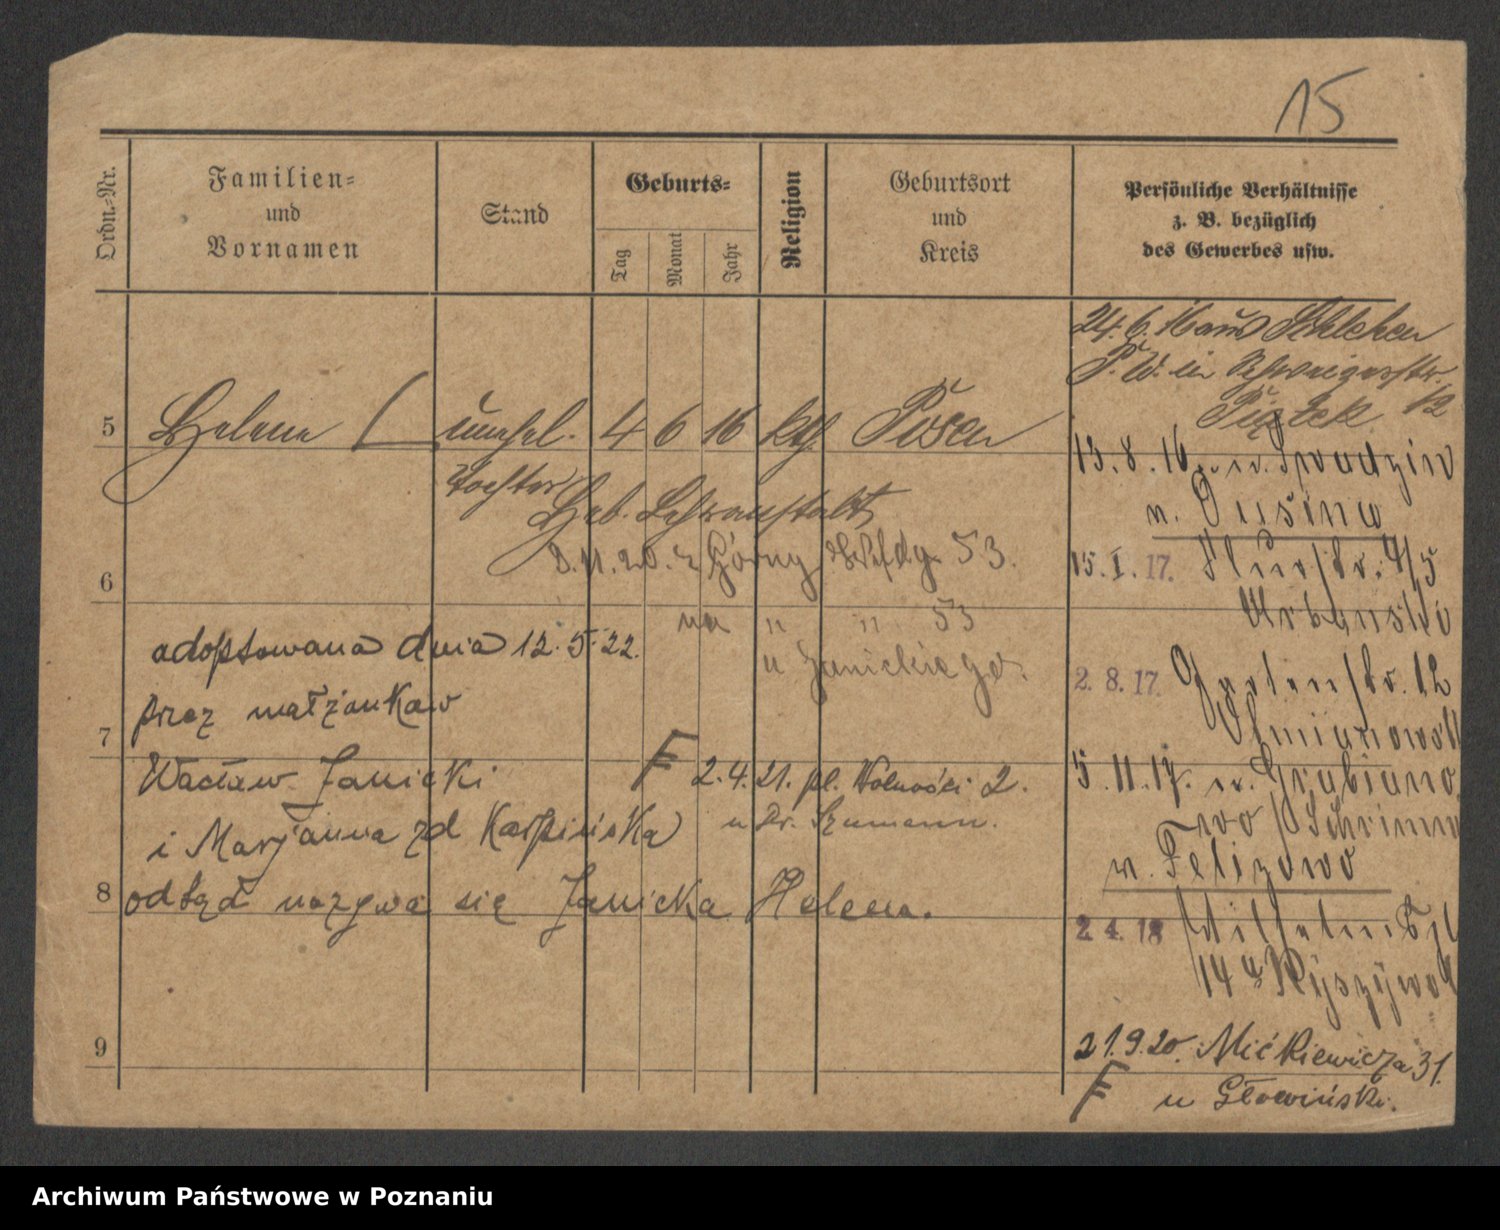 15
Ordn.-Nr.
Familien-
und
Vornamen
Stand
Geburts-
Tag
Monat
Jahr
Religion
Geburtsort
und
Kreis
Persönliche Verhältnisse
z. B. bezüglich
des Gewerbes usw.
5
Helene
unehel.
4 6 16 kth Posen
Tochter
Heb. Lehranstalt
24. 6. 16 aus
P. W. in
Piątek 12
13. 8. 16
n. Dusina
15. I. 17. 4/5
Urbanski
2. 8. 17. Gartenstr. 12
5. 11. 17. n. Grabiano
wo / Schrimm
n. Felizowo
2. 4. 18
14a
21. 9. 20. Mickiewicza 31.
F u Głowiński.
6
8. 11. 20. z Górny 53.
na " " 53
u Janickiego.
adoptowana dnia 12. 5. 22.
przez małżonków
7
Wacław Janicki
F 2. 4. 21. pl. Wolności 2.
u Dr. Szumann.
i Marjanna zd Karpińska
8
odtąd nazywa się Janicka Helena.
9
Archiwum Państwowe w Poznaniu